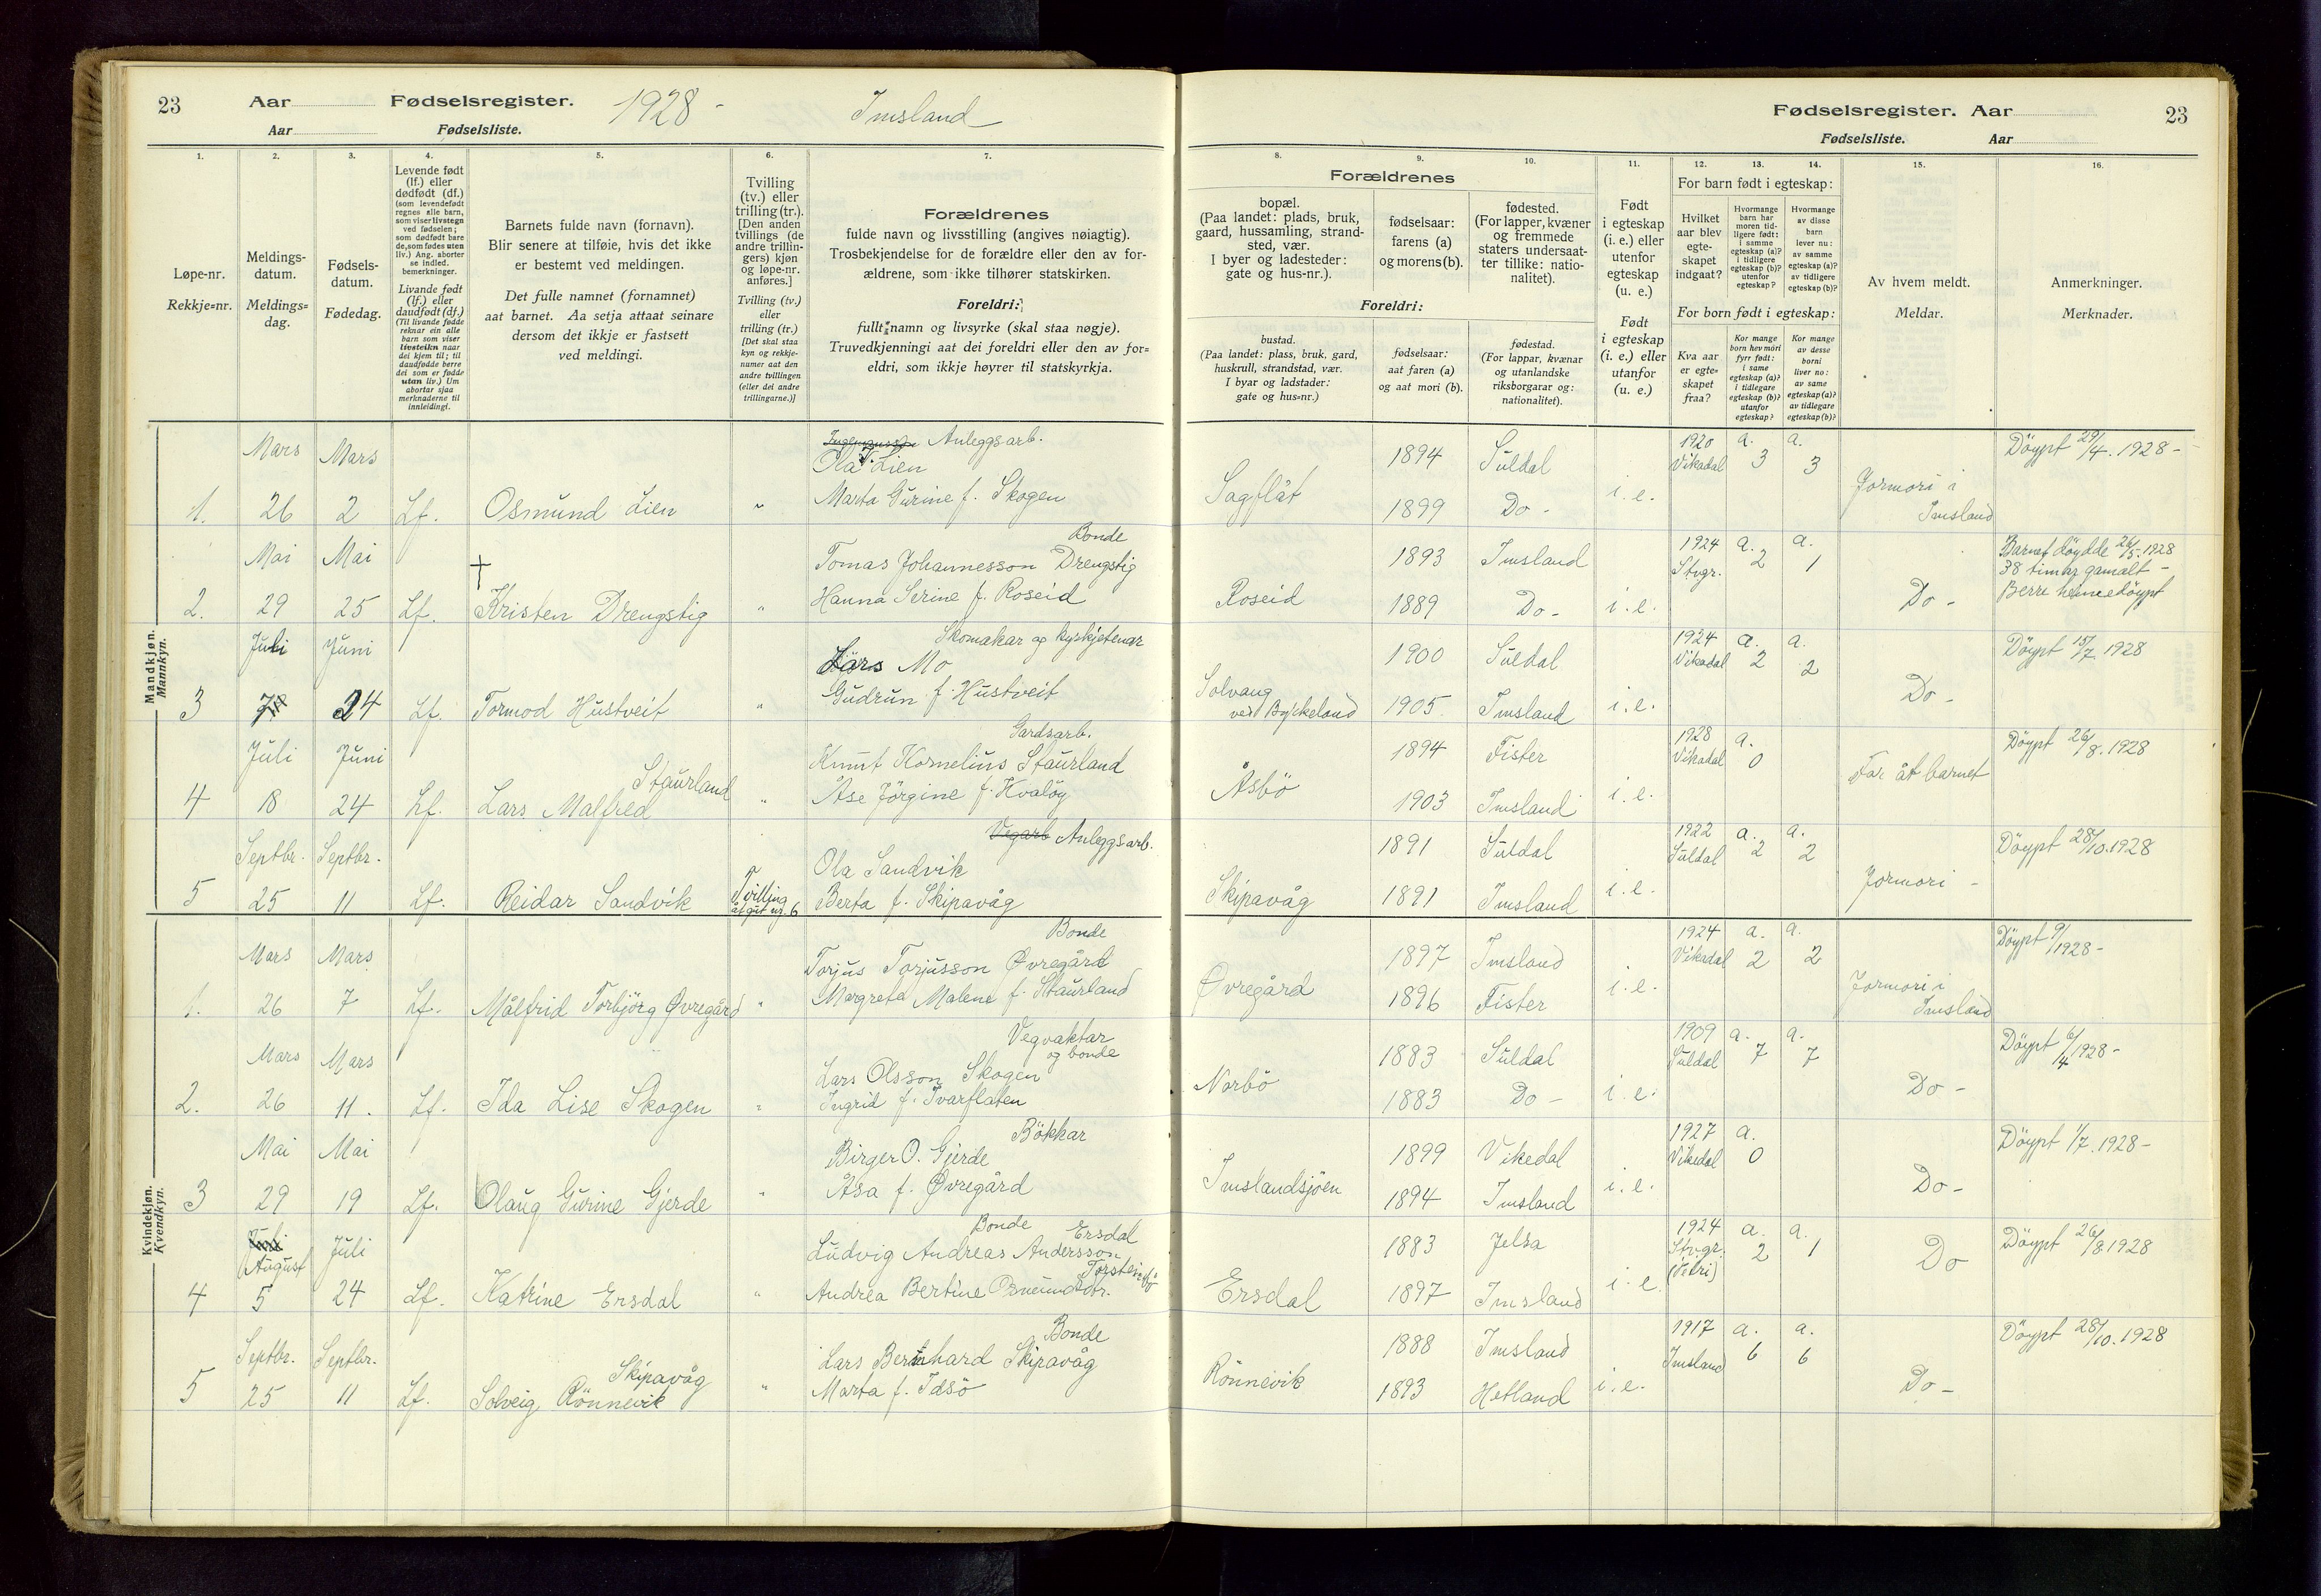 23 Aar Fødselsregister. 1928 - Imsland
Aar Fødselsliste.
Fødselsregister. Aar 23
Fødselsliste. Aar
1. 2. 3. 4. 5. 6. 7. 8. 9. 10. 11. 12. 13. 14. 15. 16.
Løpe-nr.
Rekkje=nr.
Meldings-
datum.
Meldings=
dag.
Fødsels-
datum.
Fødedag.
Levende født
(lf.) eller
dødfødt (df.)
(som levendefødt
regnes alle barn,
som viser livstegn
ved fødselen;
som dødfødt bare
de, som fødes uten
liv.) Ang. aborter
se indled.
bemerkninger.
Livande født
(lf.) eller
daudfødt (df.)
(Til livande fødde
reknar ein alle
barn som viser
livsteikn naar
dei kjem til; til
daudfødde berre
dei som er fødde
utan liv.) Um
abortar sjaa
merknaderne til
innleidingi.
Barnets fulde navn (fornavn).
Blir senere at tilføie, hvis det ikke
er bestemt ved meldingen.
Det fulle namnet (fornamnet)
aat barnet. Aa setja attaat seinare
dersom det ikkje er fastsett
ved meldingi.
Tvilling
(tv.) eller
trilling (tr.).
[Den anden
tvillings (de
andre trillin-
gers) kjøn
og løpe-nr.
anføres.]
Tvilling (tv.)
eller
trilling (tr.)
[Det skal staa
kyn og rekkje-
numer aat den
andre tvillingen
(eller dei andre
trillingarne.)]
Forældrenes
fulde navn og livsstilling (angives nøiagtig).
Trosbekjendelse for de forældre eller den av for-
ældrene, som ikke tilhører statskirken.
Foreldri:
fullt namn og livsyrke (skal staa nøgje).
Truvedkjenningi aat dei foreldri eller den av for=
eldri, som ikkje høyrer til statskyrkja.
Forældrenes
bopæl.
(Paa landet: plads, bruk,
gaard, hussamling, strand-
sted, vær.
I byer og ladesteder:
gate og hus-nr.).
fødselsaar:
farens (a)
og morens (b).
fødested.
(For lapper, kvæner
og fremmede
staters undersaat-
ter tillike: natio-
nalitet).
Foreldri:
bustad.
(Paa landet: plass, bruk, gard,
huskrull, strandstad, vær.
I byar og ladstader:
gate og hus=nr.)
fødselsaar:
aat faren (a)
og aat mori (b).
fødestad.
(For lappar, kvænar
og utanlandske
riksborgarar og:
nationalitet).
Født
i egteskap
(i. e.) eller
utenfor
egteskap
(u. e.)
Født
i egteskap
(i. e.) eller
utanfor
(u. e.)
For barn født i egteskap:
Hvilket
aar blev
egte-
skapet
indgaat?
Hvormange
barn har
moren tid-
ligere født:
i samme
egteskap (a)?
i tidligere
egteskap (b)?
utenfor
egteskap?
Hvormange
av disse
barn
lever nu:
av samme
egteskap (a)?
av tidligere
egteskap (b)?
For born født i egteskap:
Kva aar
er egte=
skapet
fraa?
Kor mange
born hev mori
fyrr født:
i same
egteskap (a)?
i tidlegare
egteskap (b)?
utanfor
egteskap?
Kor mange
av desse
borni
liver no:
av same
egteskap (a)?
av tidlegare
egteskap (b)?
Av hvem meldt.
Meldar.
Anmerkninger.
Merknader.
Mandkjøn.
Mannkyn.
Mars Mars Anleggsarb.
Ola T. Lien
1. 26 2 Lf. Osmund Lien " Marta Gurine f. Skogen
Sagflåt 1894 Suldal 1899 Do - i. e. 1920 Vikadal a. 3 a. 3 Jormori i Imsland Döypt 29/4. 1928 -
Mai Mai † Bonde
Tomas Johannesson Drengstig
2. 29 25 Lf. Kristen Drengstig " Hanna Serine f. Roseid
Roseid 1893 Imsland 1889 Do - i. e. 1924 Stvgr. a. 2 a. 1 Do - Barnet döydde 26/5. 1928
38 timar gamalt -
Berre heimedöypt
Juli Juni Skomakar og kyrkjetenar
Lars Mo
3 24 Lf. Tormod Hustveit " Gudrun f. Hustveit
Solvang ved Byrkeland 1900 Suldal 1905 Imsland i. e. 1924 Vikadal a. 2 a. 2 Do - Döypt 15/7. 1928
Juli Juni Gardsarb.
Staurland Knut Kornelius Staurland
4 18 24 Lf. Lars Malfred " Åse Jörgine f. Hvalöy
Åsbö 1894 Fister 1903 Imsland i. e. 1928 Vikadal a. 0 Far åt barnet Döypt 26/8. 1928
Septbr. Septbr. Vegarb Anleggsarb.
Ola Sandvik
5 25 11 Lf. Reidar Sandvik Tvilling åt gut nr. 6 Berta f. Skipavåg
Skipavåg 1891 Suldal 1891 Imsland i. e. 1922 Suldal a. 2 a. 2 Jormori - Döypt 28/10. 1928
Kvindekjøn.
Kvendkyn.
Mars Mars Bonde
Torjus Torjusson Øvregård
1. 26 7 Lf. Målfrid Torbjörg Øvregård " Margreta Malene f. Staurland
Øvregård 1897 Imsland 1896 Fister i. e. 1924 Vikadal a. 2 a. 2 Jormori i Imsland Döypt 9/ 1928 -
Mars Mars Vegvaktar
og bonde
Lars Olsson Skogen
2. 26 11. Lf. Ida Lise Skogen " Ingrid f. Ivarflaten
Norbö 1883 Suldal 1883 Do - i. e. 1909 Suldal a. 7 a. 7 Do - Döypt 6/4 1928 -
Mai Mai Bökkar
Birger O. Gjerde
3 29 19 Lf. Olaug Gurine Gjerde " Åsa f. Øvregård
Imslandsjöen 1899 Vikedal 1894 Imsland i. e. 1927 Vikedal a. 0 Do - Döypt 1/7. 1928 -
Juli August Juli Bonde Ersdal
Ludvig Andreas Andersson
Torsteinsbö
4 5 24 Lf. Katrine Ersdal " Andrea Bertine Osmundsdtr.
Ersdal 1883 Jelsa 1897 Imsland i. e. 1924 Stvgr. (Petri) a. 2 a. 1 Do Döypt 26/8 1928
Septbr. Septbr. Bonde
Skipavåg Lars Bernhard Skipavåg
5 25 11 Lf. Solveig Rönnevik " Marta f. Idsö
Rönnevik 1888 Imsland 1893 Hetland i. e. 1917 Imsland a. 6 a. 6 Do - Döypt 28/10. 1928